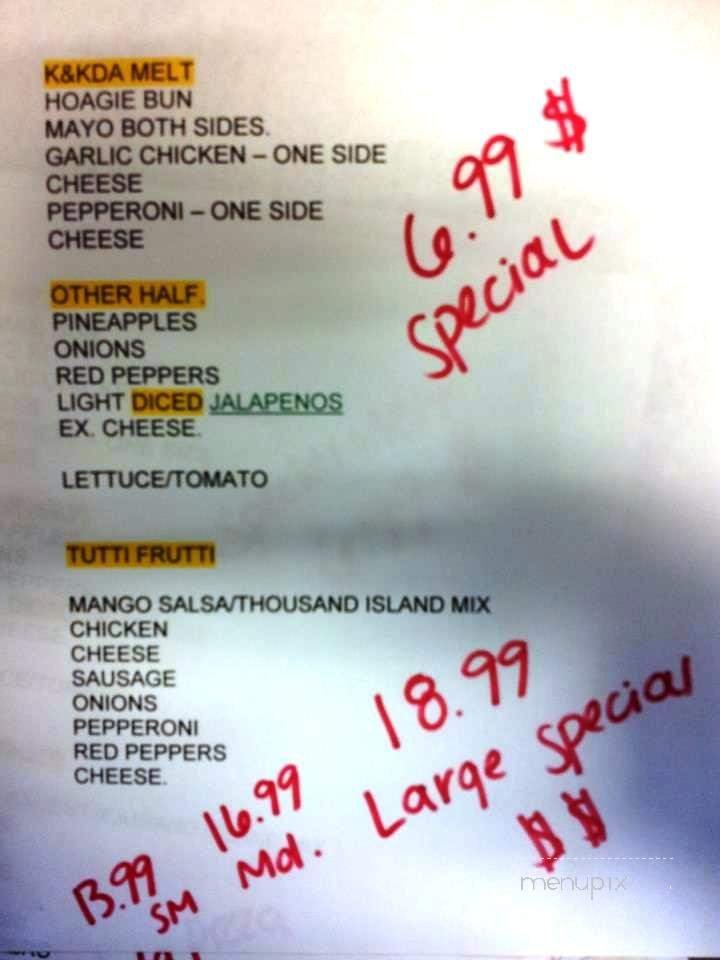 K&KDA MELT
HOAGIE BUN
MAYO BOTH SIDES.
GARLIC CHICKEN – ONE SIDE
CHEESE
PEPPERONI – ONE SIDE
CHEESE
6.99 $
Special
OTHER HALF.
PINEAPPLES
ONIONS
RED PEPPERS
LIGHT DICED JALAPENOS
EX. CHEESE.
LETTUCE/TOMATO
TUTTI FRUTTI
MANGO SALSA/THOUSAND ISLAND MIX
CHICKEN
CHEESE
SAUSAGE
ONIONS
PEPPERONI
RED PEPPERS
CHEESE.
18.99
Large Special
$ $
16.99
Md.
13.99
SM
menupix